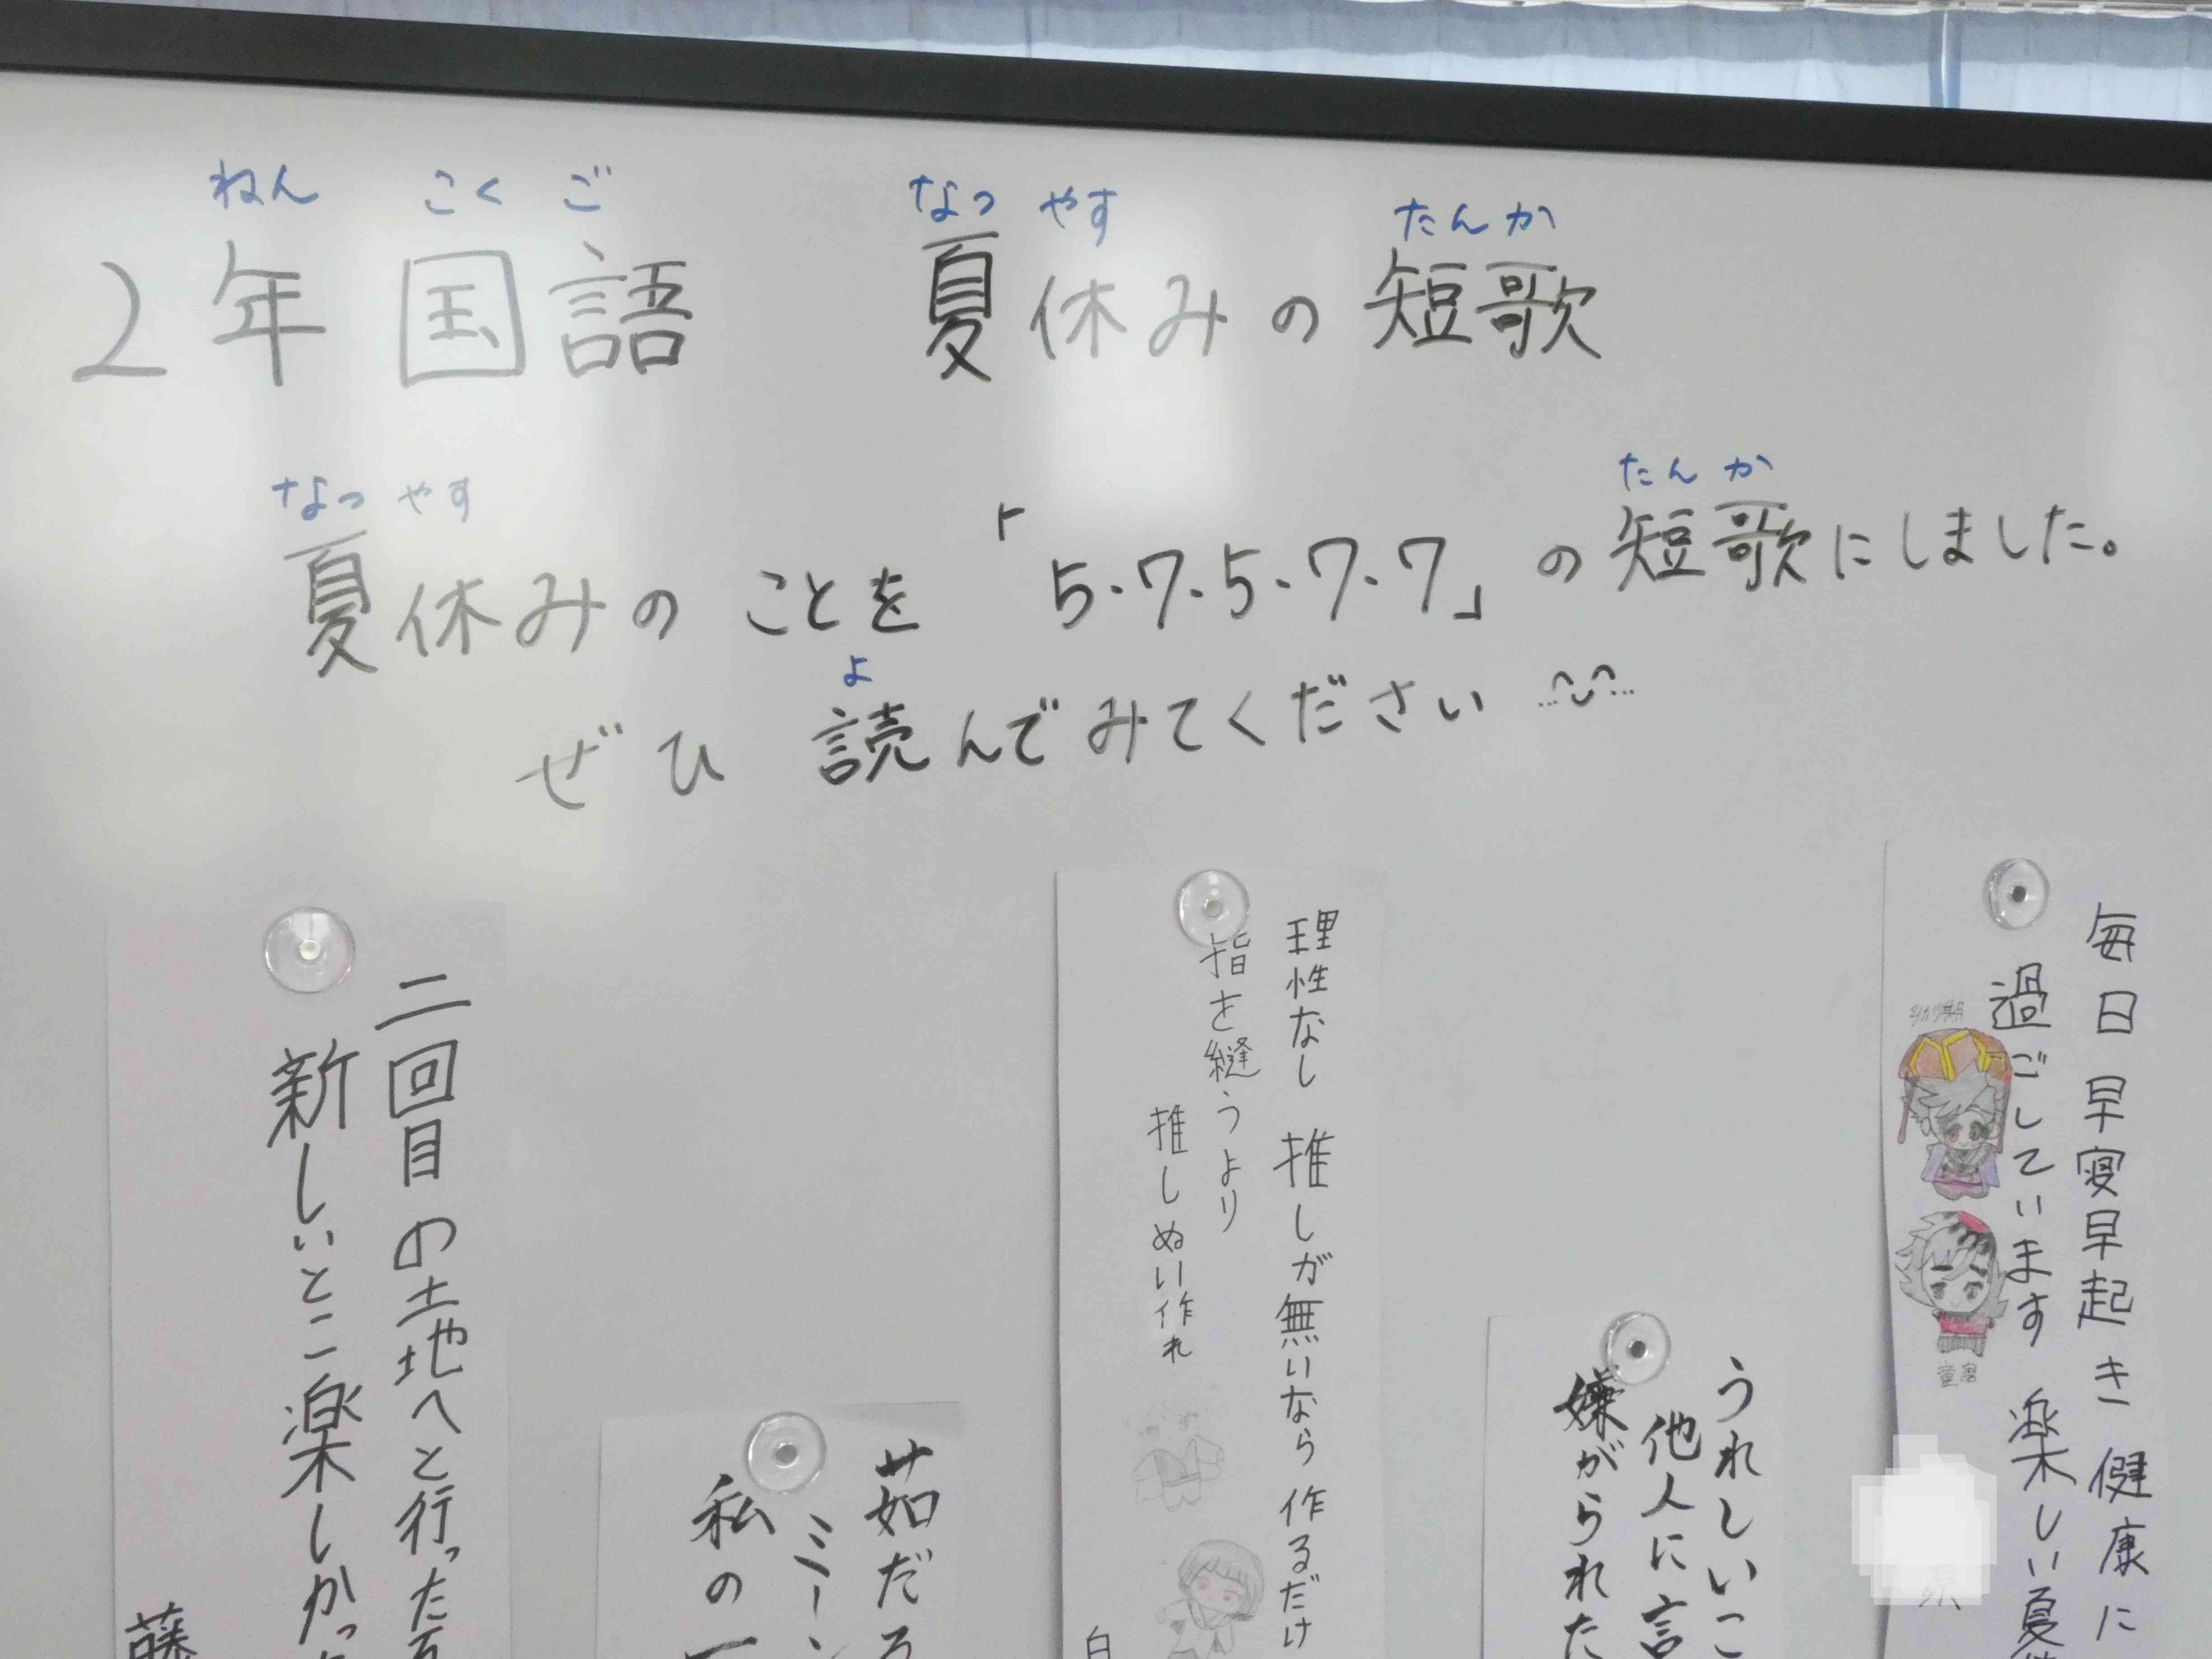 ねん こくご なつ やす たんか
2年 国語 夏休みの短歌
なつ やす たんか
夏休みの ことを 「5・7・5・7・7」の短歌にしました。
よ
ぜひ 読んでみてください
毎日 早寝早起き 健康に
過ごしています 楽しい夏
童磨
うれしいこ
他人に言
嫌がられた
理性なし 推しが無いなら 作るだけ
指を縫うより
推しぬい作れ
白
茹だろ
ミーン
私の一
二回目の土地へと行った
新しいとこ楽しかっ
藤